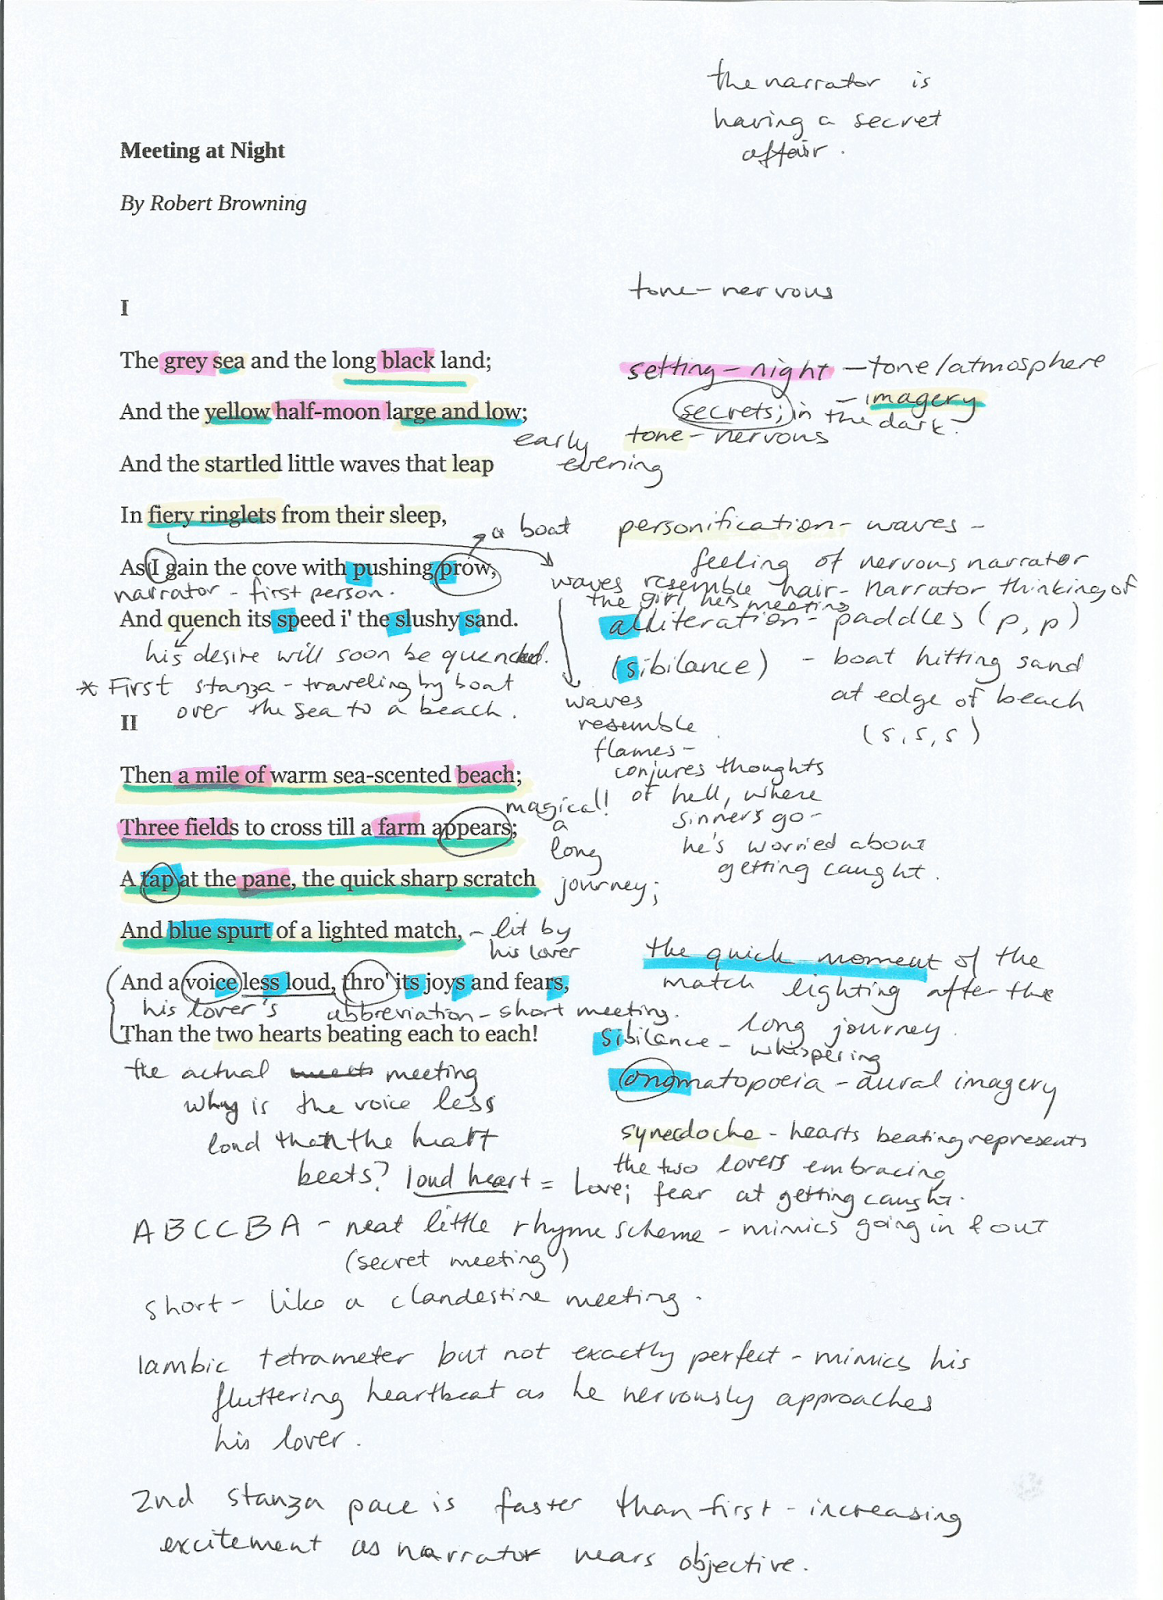 the narrator is
having a secret
affair.
Meeting at Night
By Robert Browning
tone - nervous
I
The grey sea and the long black land;
setting - night - tone/atmosphere
And the yellow half-moon large and low;
- imagery
secrets; in the dark.
early
evening
tone - nervous
And the startled little waves that leap
In fiery ringlets from their sleep,
a boat
personification - waves -
feeling of nervous narrator
As I gain the cove with pushing prow,
narrator - first person.
waves resemble hair - narrator thinking of
the girl he's meeting
And quench its speed i' the slushy sand.
alliteration - paddles (p, p)
his desire will soon be quenched.
(sibilance) - boat hitting sand
at edge of beach
(s, s, s)
* First stanza - traveling by boat
over the sea to a beach.
waves
resemble
flames -
conjures thoughts
of hell, where
sinners go -
he's worried about
getting caught.
II
Then a mile of warm sea-scented beach;
magical!
Three fields to cross till a farm appears;
a
long
journey;
A tap at the pane, the quick sharp scratch
And blue spurt of a lighted match,
- lit by
his lover
the quick moment of the
match lighting after the
long journey.
And a voice less loud, thro' its joys and fears,
his lover's
abbreviation - short meeting.
Than the two hearts beating each to each!
sibilance - whispering
the actual meets meeting
onomatopoeia - aural imagery
why is the voice less
loud than the heart
beats? loud heart = love; fear at getting caught.
synecdoche - hearts beating represents
the two lovers embracing
ABCCBA - neat little rhyme scheme - mimics going in & out
(secret meeting)
short - like a clandestine meeting.
Iambic tetrameter but not exactly perfect - mimics his
fluttering heartbeat as he nervously approaches
his lover.
2nd stanza pace is faster than first - increasing
excitement as narrator nears objective.